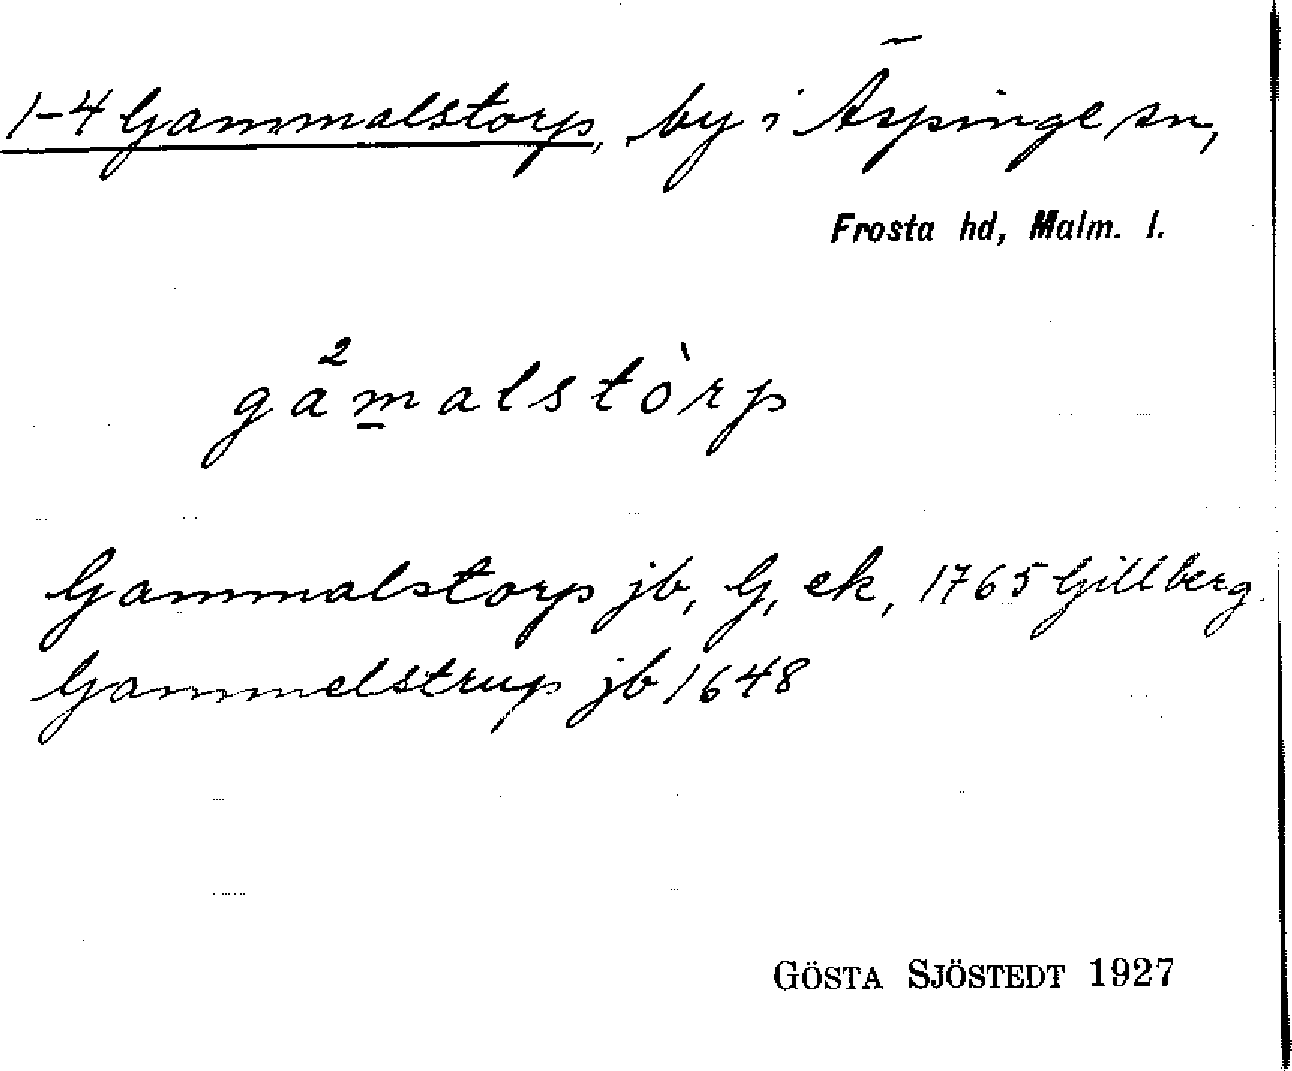 1-4 Gammalstorp, by i Äspinge sn,
Frosta hd, Malm. l.
gå²m̲alstò̀rp
Gammalstorp jb, G, ek, 1765 Gillberg.
Gammelstrup jb 1648
GÖSTA SJÖSTEDT 1927